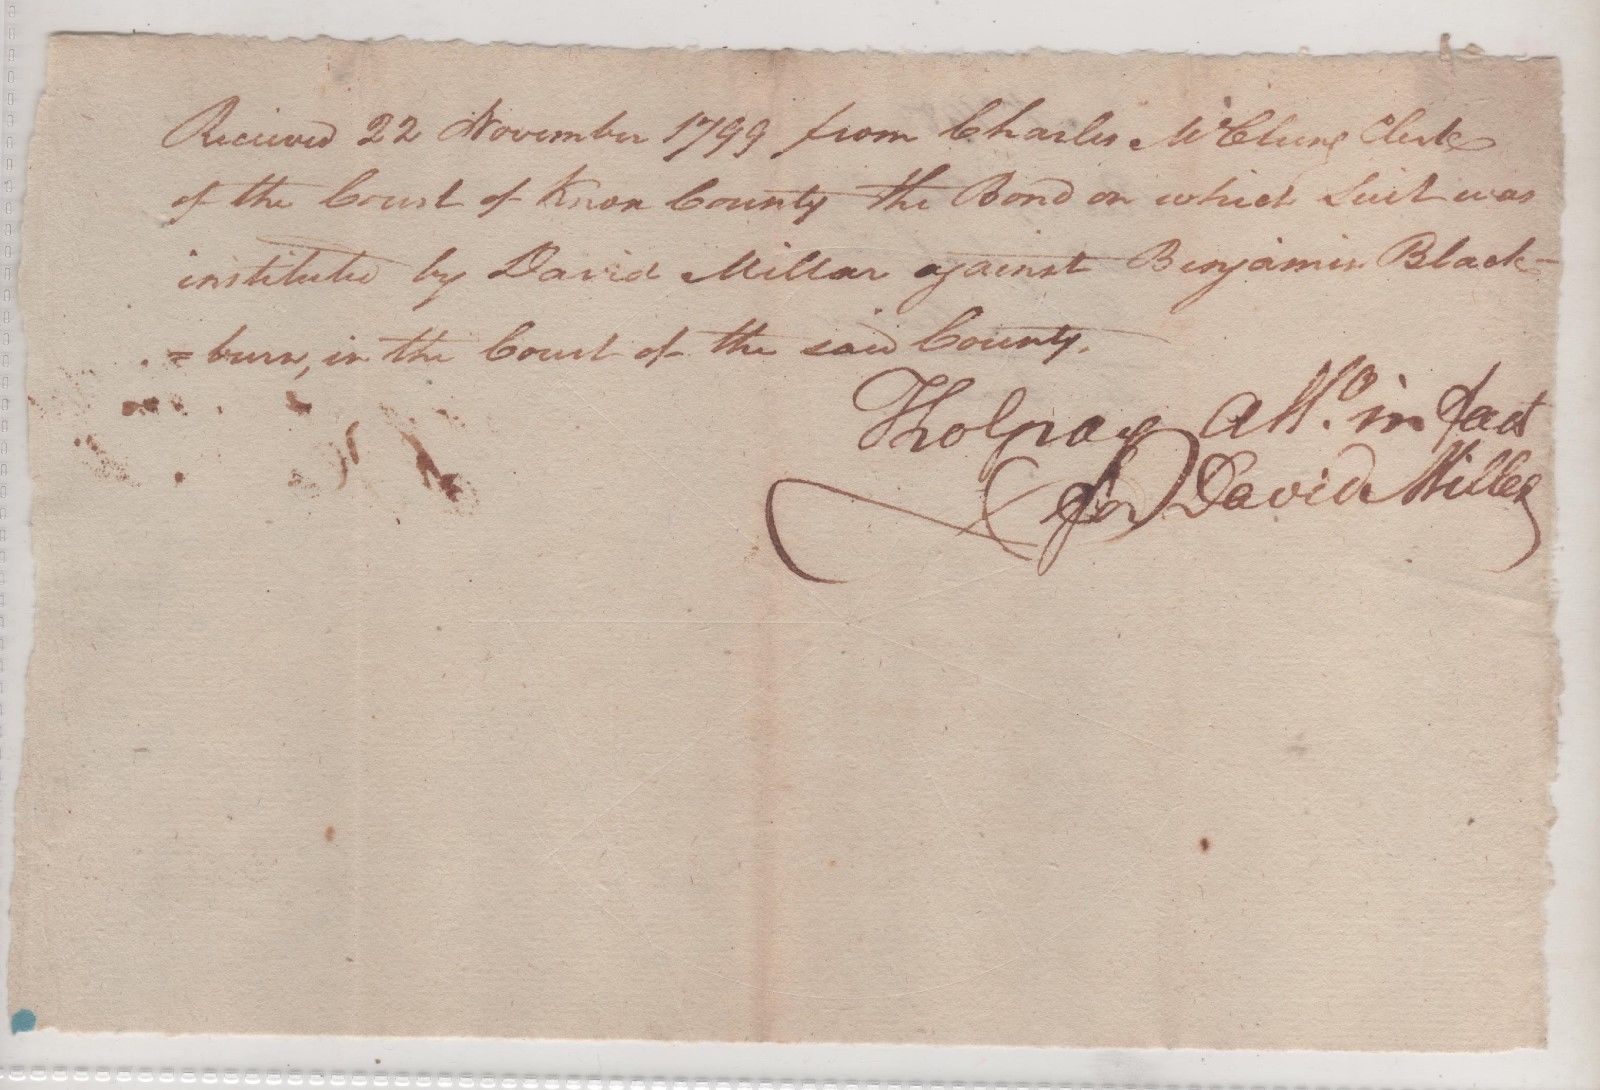 Recieved 22 November 1799 from Charles McClung Clerk
of the Court of Knox County the Bond on which Suit was
instituted by David Millar against Benjamin Black-
=burn, in the Court of the said County.
Tho Gray Atto. in fact
for David Miller